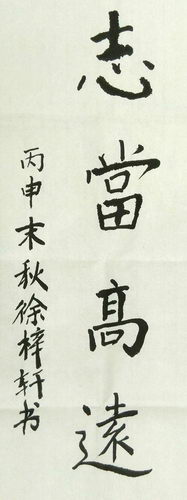 志當髙遠
丙申末秋徐梓轩书